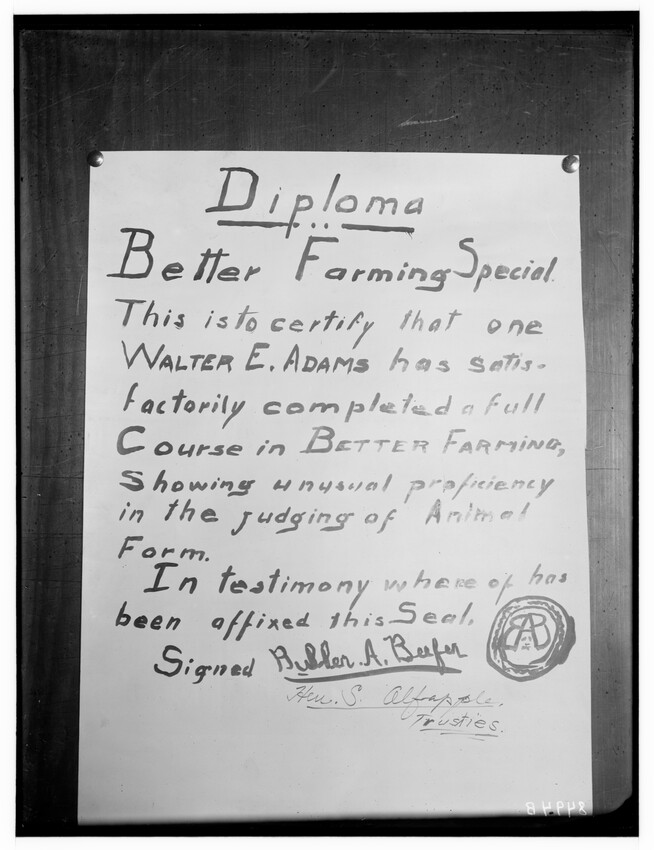 Diploma
Better Farming Special.
This is to certify that one
WALTER E. ADAMS has satis-
factorily completed a full
Course in BETTER FARMING,
Showing unusual proficiency
in the judging of Animal
Form.
In testimony where of has
been affixed this Seal.
Signed Bubler. A. Beefer
Hen. S. Alfapple.
Trusties.